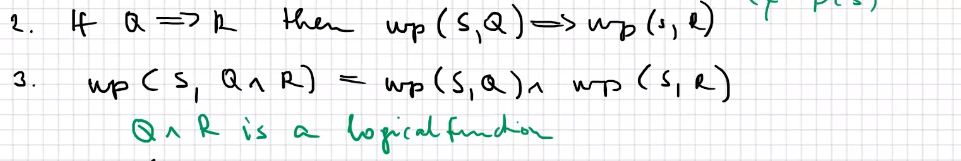 2. If Q => R then wp(S,Q) => wp(s, R)
3. wp(S, Q ∧ R) = wp(S,Q) ∧ wp(S, R)
Q ∧ R is a logical function